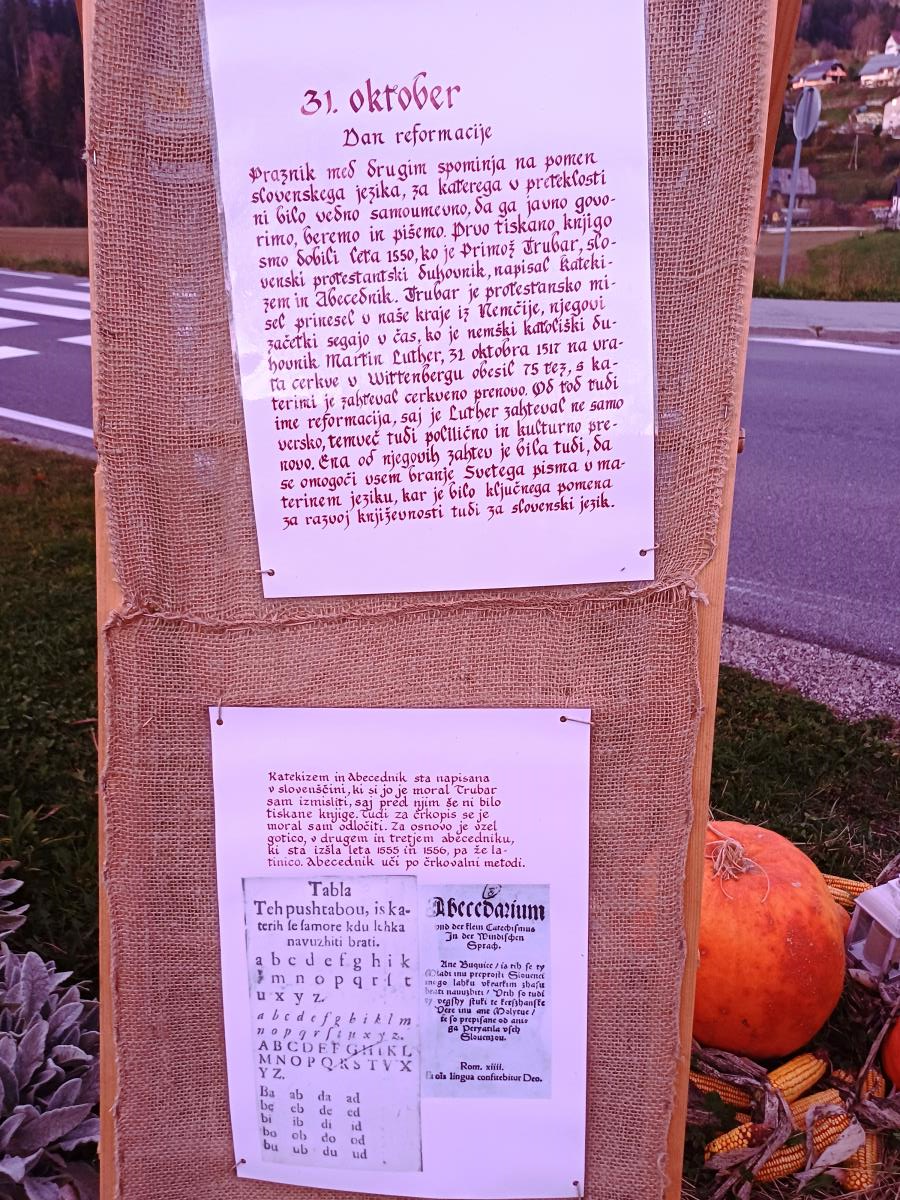 31. oktober
Dan reformacije
Praznik med drugim spominja na pomen
slovenskega jezika, za katerega v preteklosti
ni bilo vedno samoumevno, da ga javno govo-
rimo, beremo in pišemo. Prvo tiskano knjigo
smo dobili leta 1550, ko je Primož Trubar, slo-
venski protestantski duhovnik, napisal Kateki-
zem in Abecednik. Trubar je protestansko mi-
sel prinesel v naše kraje iz Nemčije, njegovi
začetki segajo v čas, ko je nemški katoliški du-
hovnik Martin Luther, 31 oktobra 1517 na vra-
ta cerkve v Wittenbergu obesil 75 tez, s ka-
terimi je zahteval cerkveno prenovo. Od tod tudi
ime reformacija, saj je Luther zahteval ne samo
versko, temveč tudi polilično in kulturno pre-
novo. Ena od njegovih zahtev je bila tudi, da
se omogoči vsem branje Svetega pisma v ma-
terinem jeziku, kar je bilo ključnega pomena
za razvoj književnosti tudi za slovenski jezik.
Katekizem in Abecednik sta napisana
v slovenščini, ki si jo je moral Trubar
sam izmisliti, saj pred njim še ni bilo
tiskane knjige. Tudi za črkopis se je
moral sam odločiti. Za osnovo je vzel
gotico, v drugem in tretjem abecedniku,
ki sta izšla leta 1555 in 1556, pa že la-
tinico. Abecednik uči po črkovalni metodi.
Tabla
Teh pushtabou, is ka-
terih ſe ſamore kdu lehka
navuzhiti brati.
a b c d e f g h i k
l m n o p q r ſ t
u x y z.
a b c d e f g h i k l m
n o p q r ſ t u x y z.
A B C D E F G H I K L
M N O P Q R S T V X
Y Z.
Ba ab da ad
be eb de ed
bi ib di id
bo ob do od
bu ub du ud
Abecedarium
vnd der klein Catechismus
In der Windischen
Sprach.
Ane Buquice / is tih se ty
Mladi inu preprosti Slouenci
mogo lahku vkratkim zhasu
brati nauuzhiti / Vtih so tudi
ty vegshy stuki te kerszhanske
Vere inu ane Molytue /
te so prepisane od aniga
Peryatila vseh
Slouenzou.
Rom. xiiii.
Et ois lingua confitebitur Deo.